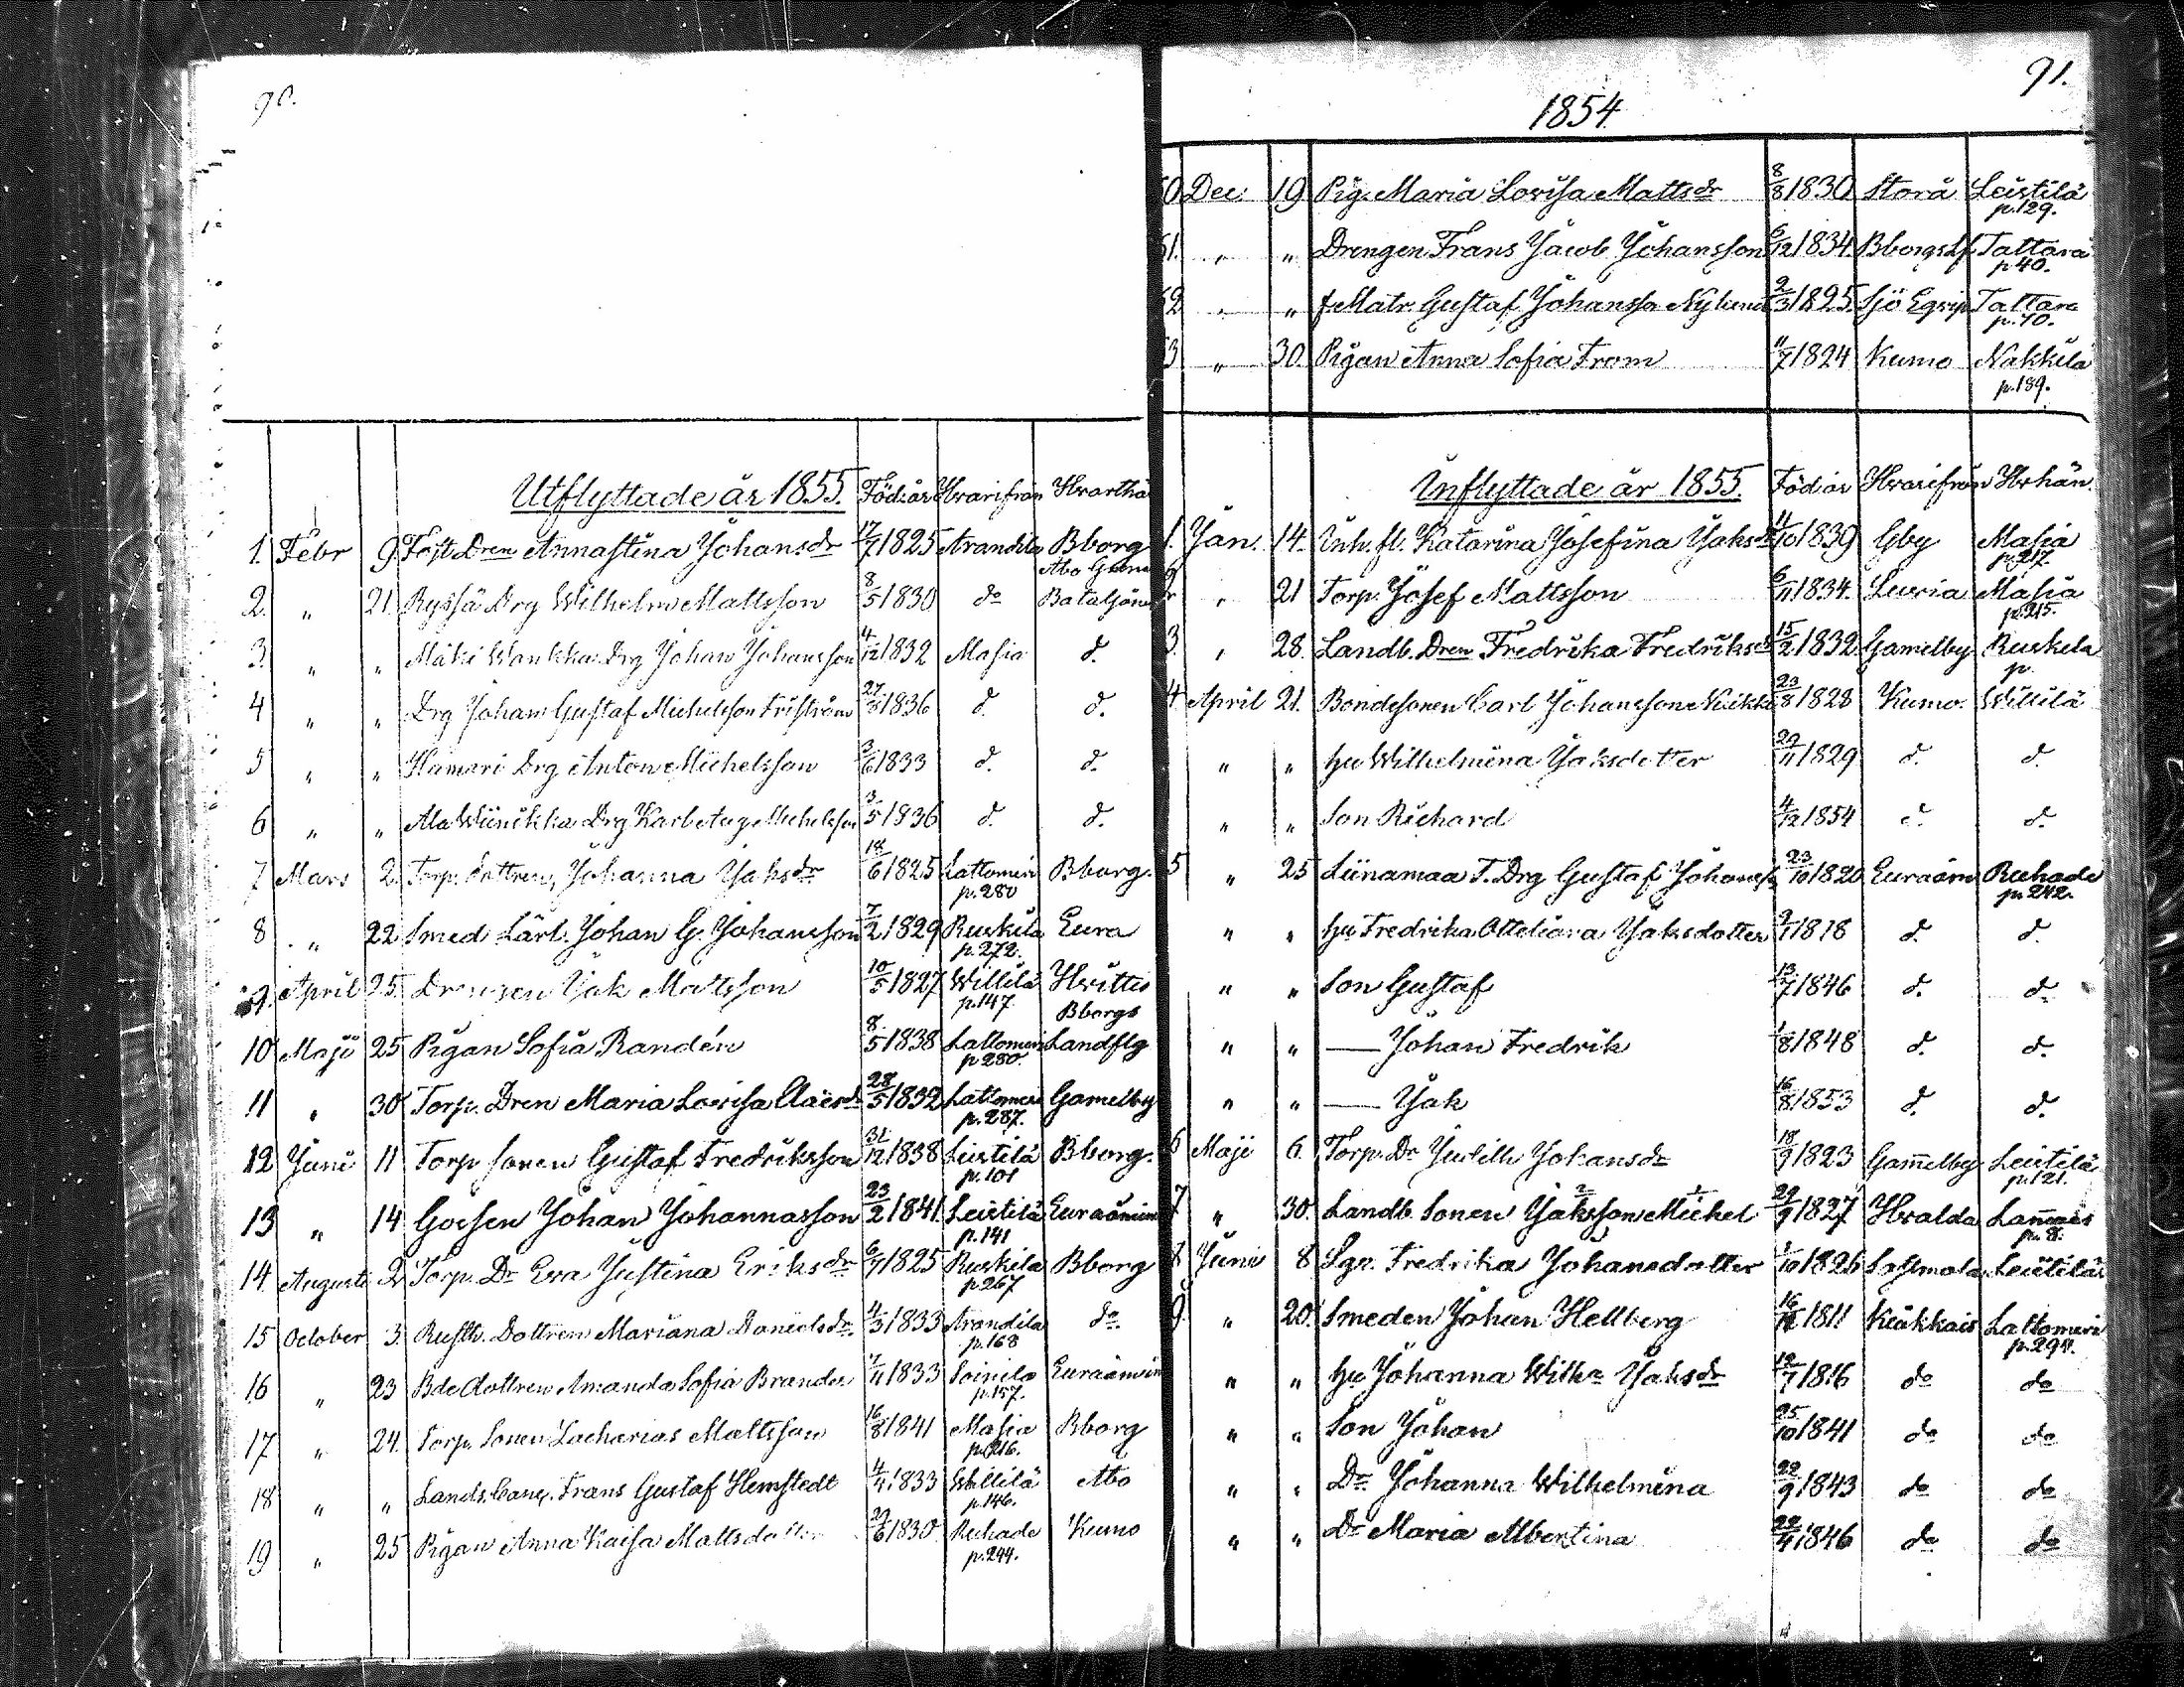 90.
Utflyttade år 1855. Föd: år Hvarifrån Hvarthä
1. Febr 9 Dren Annastina Johansdr 17/7 1825 Arandila Bborg
Åbo Gren
2. " 21. Ryssä Drg Wilhelm Mattsson 8/5 1830 do Bataljon
3. " " Mäki Drg Johan Johansson 4/12 1832 Masia d.
4 " " Drg Johan Gustaf Michelsson 27/8 1836 d. d.
5 " " Hamari Drg Anton Michelsson 3/6 1833 d. d.
6 " " Ala Drg Karl Aug. Michelsson 3/5 1836 d. d.
7 Mars 2. Torp. dottren, Johanna Jaksdr 18/6 1825 Lattomeri Bborg.
p. 280
8 " 22 Smed Lärl. Johan G. Johansson 7/2 1829 Ruskila Eura
p. 272.
9. April 25. Drengen Jak Mattsson 10/5 1827 Willilä Hvittis
p. 147.
Bborgs
10 Maji 25 Pigan Sofia Randén 8/5 1838 Lattomeri Landflg
p 280.
11 " 30 Torp. Dren Maria Lovisa Claësdr 28/5 1832 Lattomeri Gamelby
p. 287.
12 Juni 11 Torp sonen Gustaf Fredriksson 31/12 1838 Leistilä Bborg.
p. 101
13 " 14 Gossen Johan Johannasson 23/2 1841. Leistilä Euraåmin
p. 141
14 Augusti 2. Torp. Dr Eva Justina Eriksdr 6/7 1825 Ruskila Bborg
p. 267
15 October 3. Rusth. Dottren Mariana Danielsdr. 4/3 1833 Arandila do
p. 168
16 " 23 Bde dottren Amanda Sofia Brander 1833 Soinila Euraåmin
p. 157.
17 " 24. Torp. Sonen Zacharias Mattsson 16/8 1841 Masia Bborg
p. 216.
18 " " Lands. Canc. Frans Gustaf Hemstedt 4/4 1833 Willilä Åbo
p. 146.
19 " 25 Pigan Anna Kaisa Mattsdotter 1830 Ruhade Kumo
p. 244.
91.
1854.
50 Dec: 19 Pig. Maria Lovisa Mattsdr 8/8 1830 Storå Leistilä
p. 129.
51. " " Drengen Frans Jacob Johansson 6/12 1834. Bborgs Lf. Tattara
p 40.
52 " " f. Matr. Gustaf Johansson Nylund 2/3 1825. Sjö Eqvip Tattara
p. 40.
53 " 30. Pigan Anna Sofia From 11/7 1824 Kumo Nakkila
p. 189.
Inflyttade år 1855. Föd: år Hvarifrån Hvhän.
1. Jan. 14. Inh. fl. Katarina Josefina Jaksdr 11/10 1839 Gby Masia
p. 217.
2 " 21 Torp. Josef Mattsson 6/11 1834. Luvia Masia
p. 215.
3. " 28. Landb. Dren Fredrika Fredriksdr 15/2 1832 Gamelby Ruskela
p.
4 April 21. Bondesonen Carl Johansson 23/8 1828 Kumo. Willilä
" " hu Wilhelmina Jaksdotter 29/11 1829 d. d.
" " Son Richard 4/12 1854 d. d.
5 " 25 Liinamaa T. Drg Gustaf Johanss 23/10 1820 Euraåm Ruhade
p. 242.
" " hu Fredrika Otteliana Jaksdotter 1818 d. d.
" " Son Gustaf 13/7 1846 d. d.
" " — Johan Fredrik 1/8 1848 d. d.
" " — Jak 16/8 1853 d. d.
6 Maji 6. Torp. Dr Judith Johansdr 18/9 1823 Gamelby Leistilä
p. 121.
7 " 30. Landb. Sonen Jaksson Michel 29/9 1827 Hvalda Lammais
p. 8.
8 Juni 8 Sgr. Fredrika Johansdotter 1/10 1826 Lastmola Leistilä
9. " 20. Smeden Johan Hellberg 1811 Kiukkais Lattomeri
p. 294.
" " hu Johanna Wilha Jaksdr 12/7 1816 do do
" " Son Johan 25/10 1841 do do
" " Dr Johanna Wilhelmina 22/9 1843 do do
" " Dr Maria Albertina 22/4 1846 do do